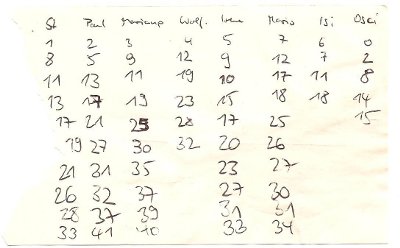 St Paul Mariano Wolf. Irene Mario Isi Oski
1 2 3 4 5 7 6 0
8 5 9 12 9 12 7 2
11 13 11 19 10 17 11 8
13 17 19 23 15 18 18 14
17 21 25 28 17 25 15
19 27 30 32 20 26
21 31 35 23 27
26 32 37 27 30
28 37 39 31 31
33 41 40 33 34